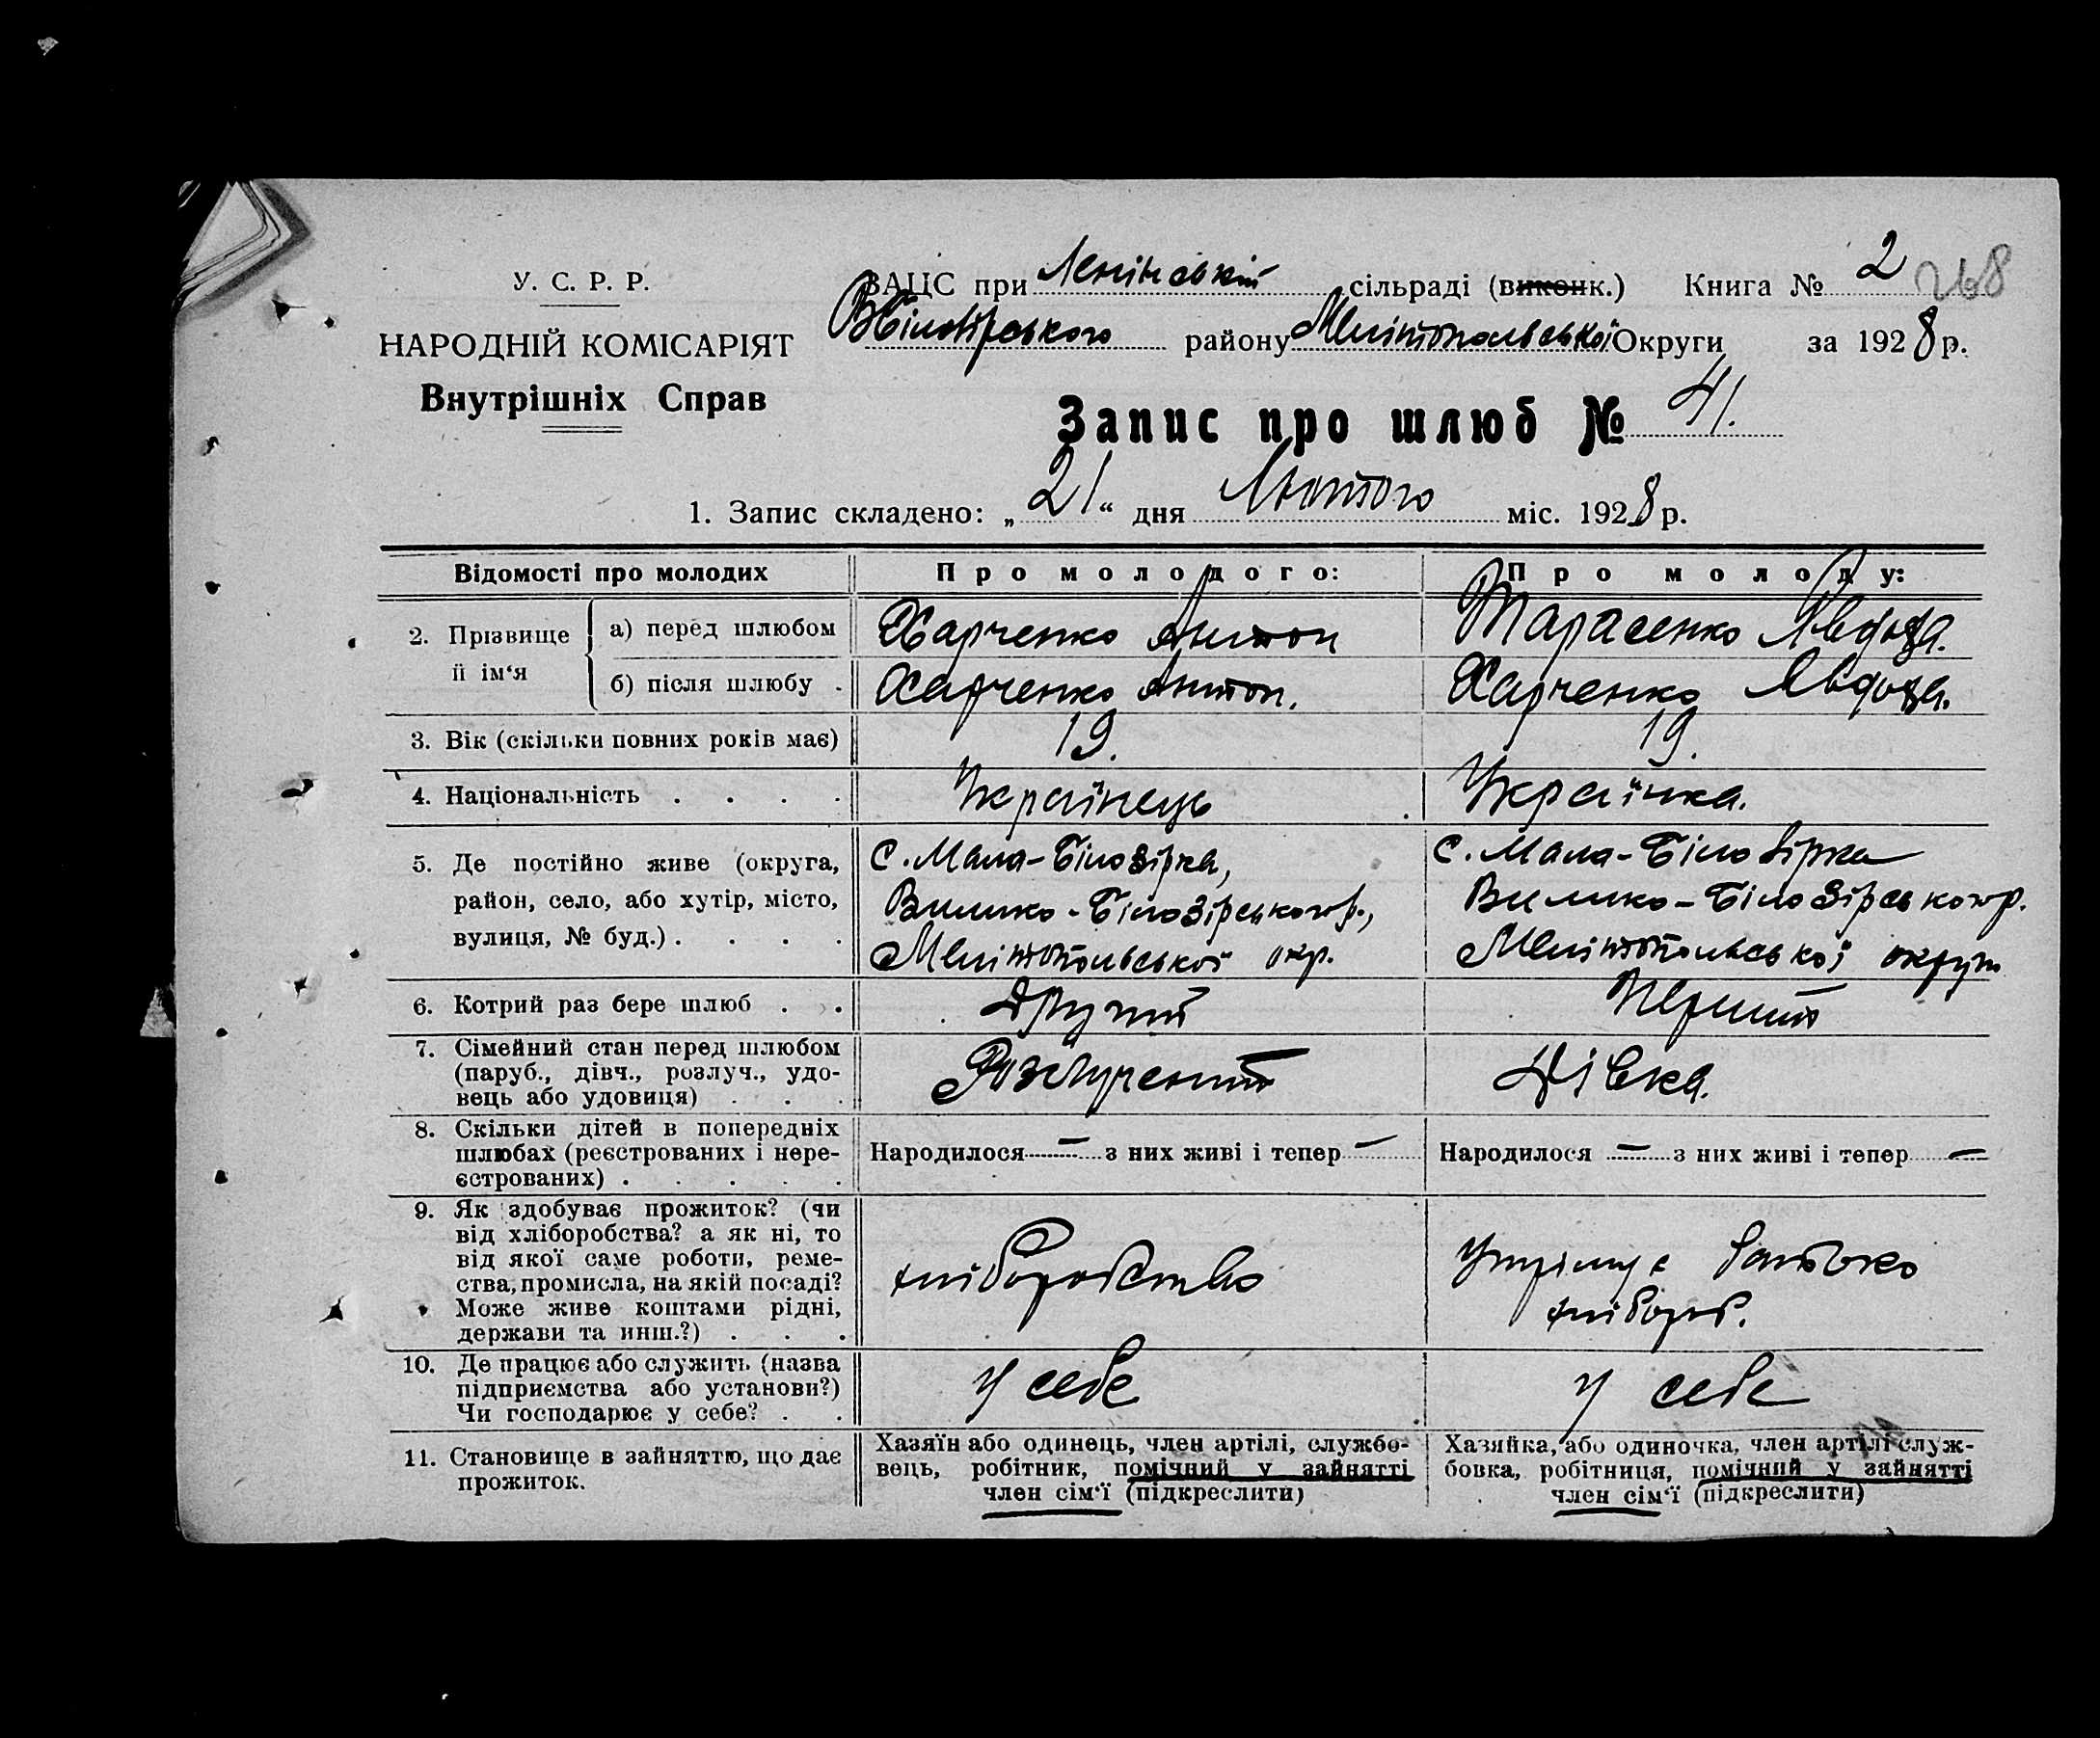 У. С. Р. Р.
НАРОДНІЙ КОМІСАРІЯТ
Внутрішніх Справ
ЗАЦС при Ленінській сільраді (виконк.) Книга № 2 268
В Білозірського району Мелітопольської Округи за 1928 р.
Запис про шлюб № 41.
1. Запис складено: „21“ дня Лютого міс. 1928 р.
Відомості про молодих
Про молодого:
Про молоду:
2. Прізвище й ім‘я
а) перед шлюбом
Харченко Антон
Тарасенко Явдоха.
б) після шлюбу .
Харченко Антон.
Харченко Явдоха.
3. Вік (скільки повних років має)
19.
19.
4. Національність . . . .
Українець
Українка.
5. Де постійно живе (округа,
район, село, або хутір, місто,
вулиця, № буд.) . . . .
с. Мала-Білозірка,
Велико-Білозірського р.,
Мелітопольської окр.
с. Мала-Білозірка
Велико-Білозірського р.
Мелітопольської округи
6. Котрий раз бере шлюб . .
Другий
Перший
7. Сімейний стан перед шлюбом
(паруб., дівч., розлуч., удо-
вець або удовиця) . . .
Розлучений
Дівка.
8. Скільки дітей в попередніх
шлюбах (реєстрованих і нере-
єстрованих) . . . . .
Народилося — з них живі і тепер —
Народилося — з них живі і тепер —
9. Як здобуває прожиток? (чи
від хліборобства? а як ні, то
від якої саме роботи, реме-
ства, промисла, на якій посаді?
Може живе коштами рідні,
держави та инш.?) . . .
хліборобство
Утрімує батько
хлібороб.
10. Де працює або служить (назва
підприємства або установи?)
Чи господарює у себе? . .
у себе
у себе
11. Становище в зайняттю, що дає
прожиток.
Хазяїн або одинець, член артілі, службо-
вець, робітник, помічний у зайнятті
член сім‘ї (підкреслити)
Хазяйка, або одиночка, член артілі служ-
бовка, робітниця, помічний у зайнятті
член сім‘ї (підкреслити)